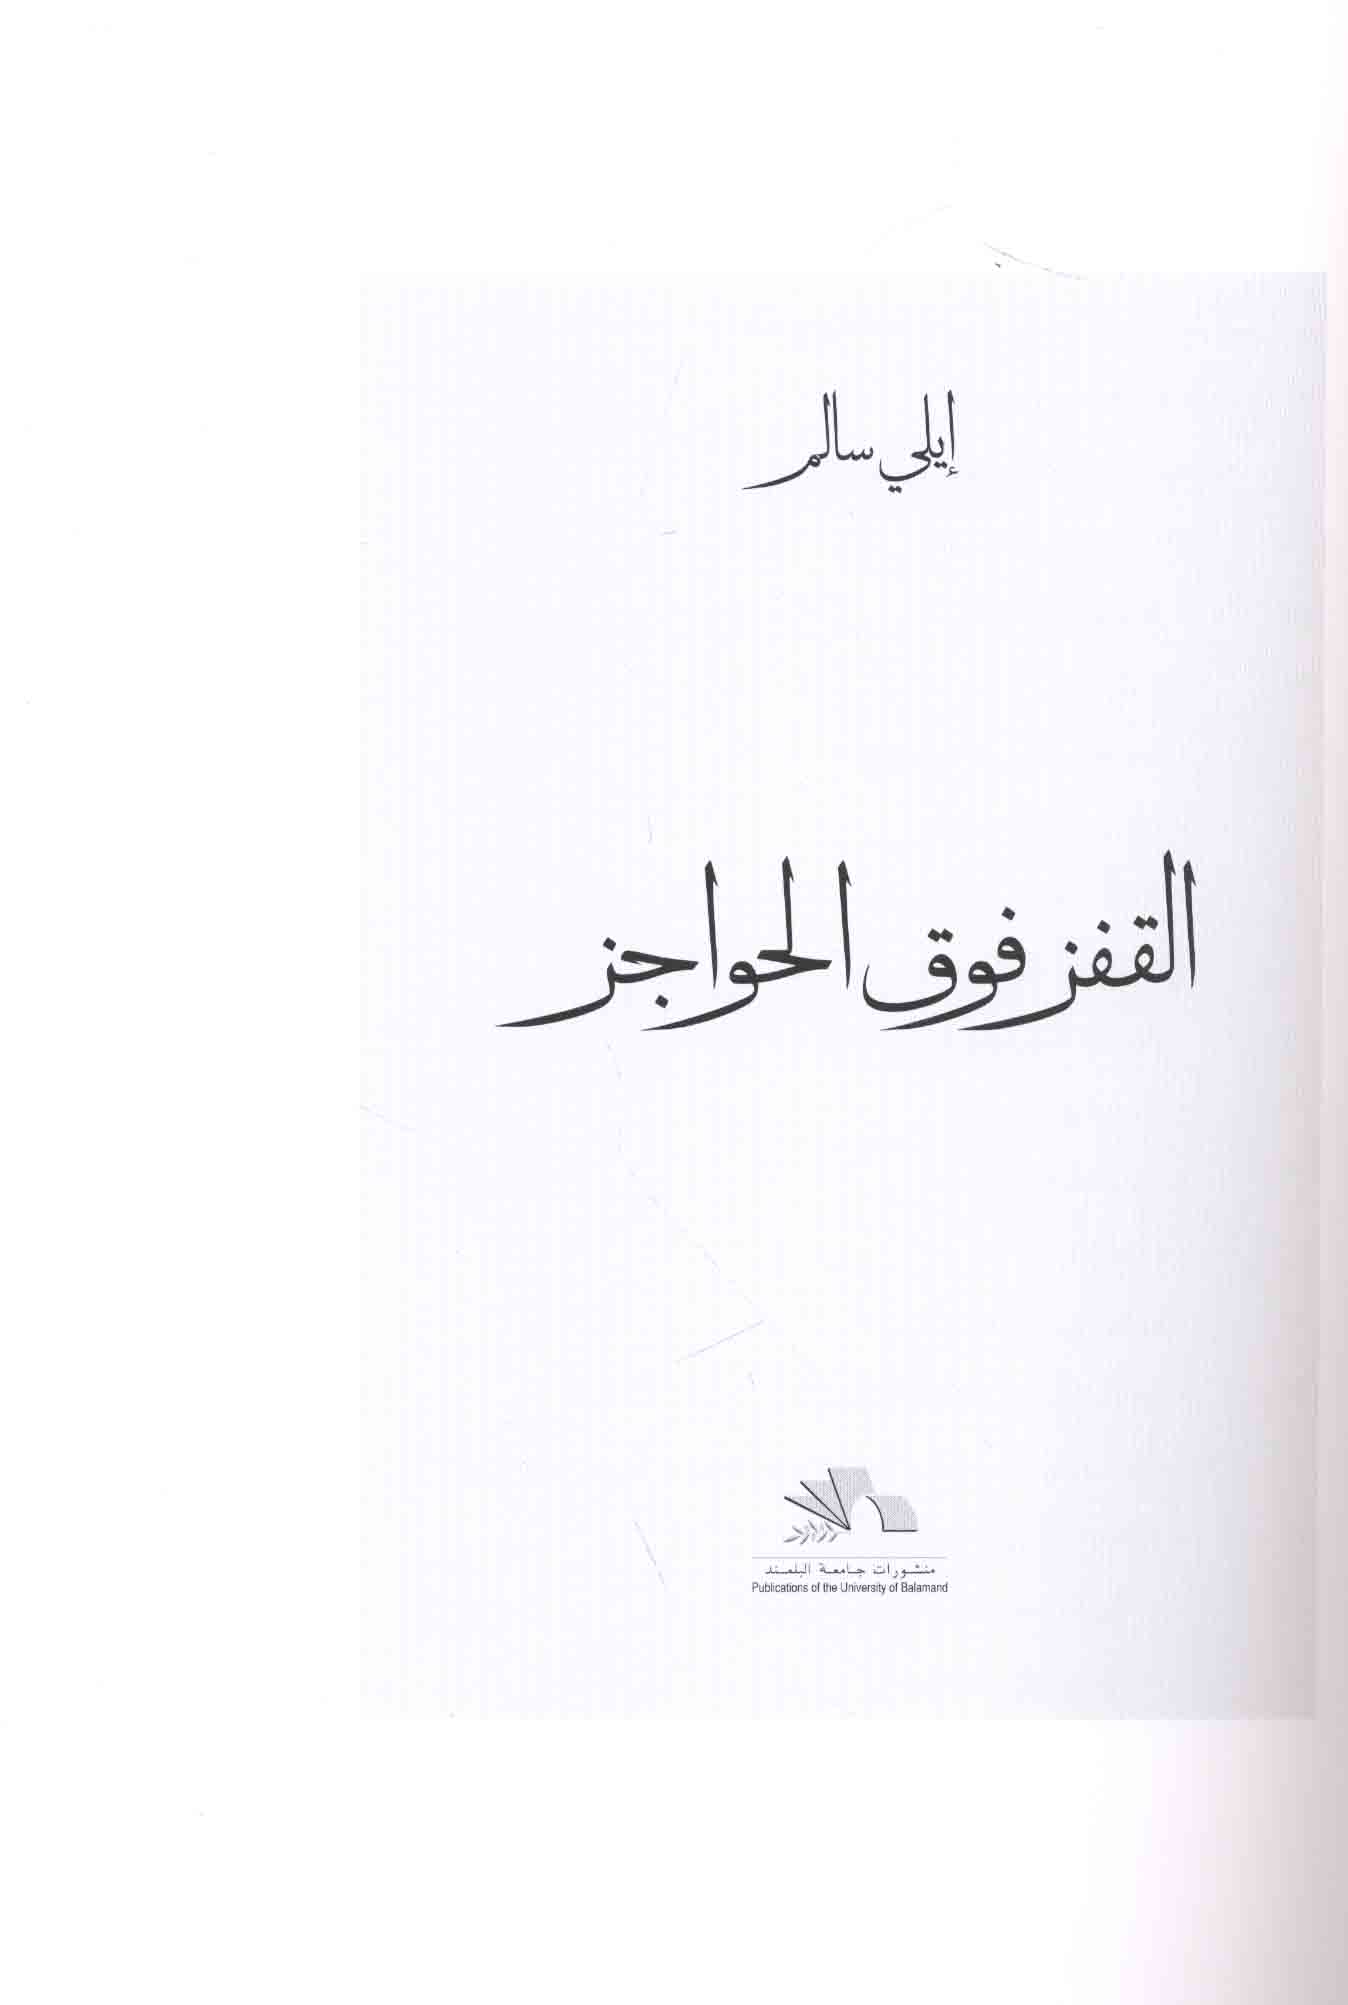 إيلي سالم
القفز فوق الحواجز
منشورات جامعة البلمند
Publications of the University of Balamand